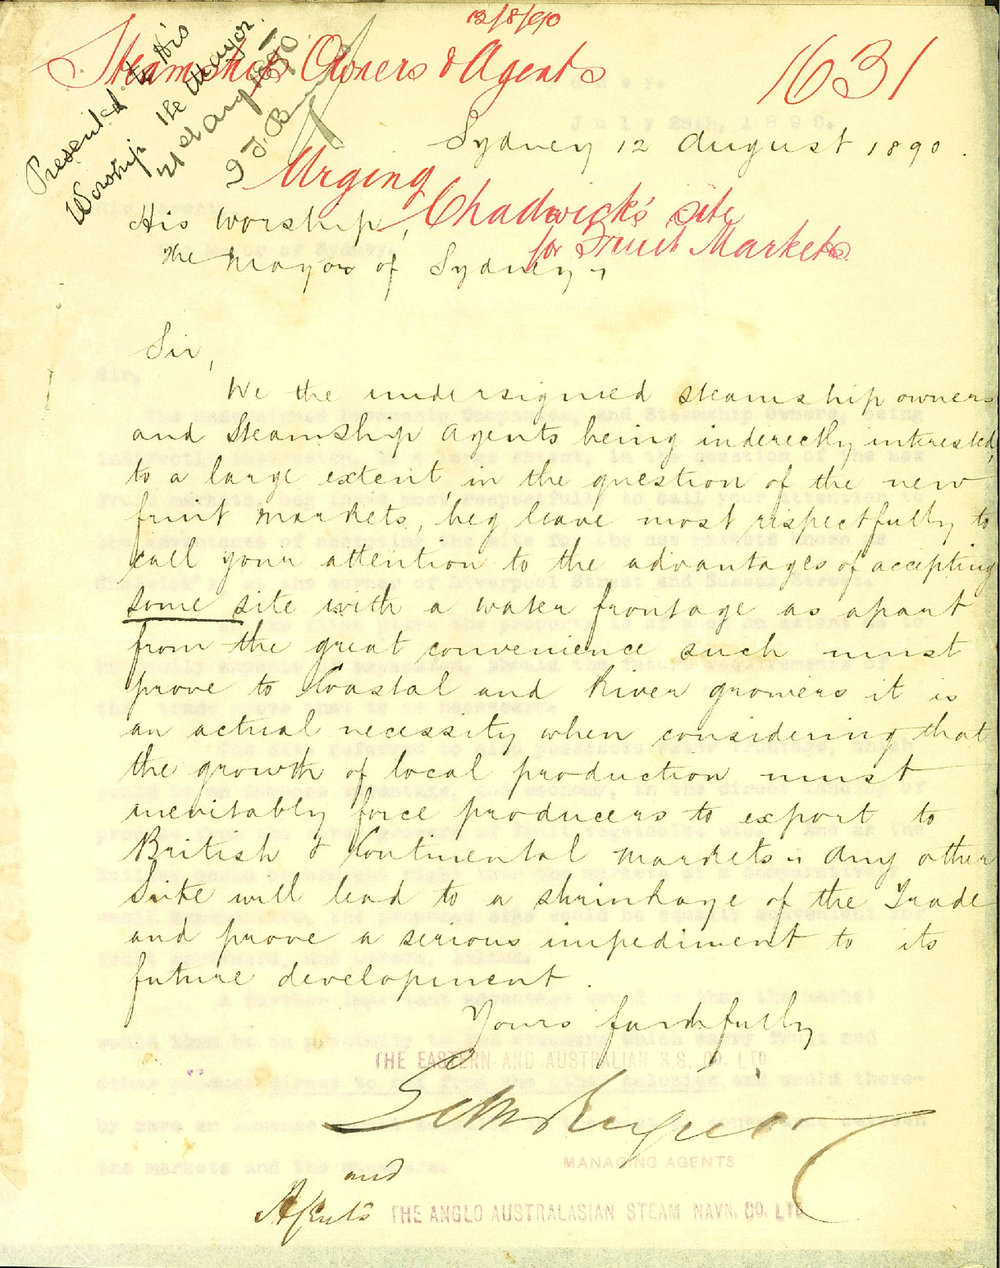 12/8/90
Steamship Owners & Agents
1631
Presented to His
Worship the Mayor
21st Aug 1890
Sydney 12 August 1890.
Urging Chadwick's site
for Fruit Markets
His Worship,
The Mayor of Sydney,
Sir,
We the undersigned steamship owners
and Steamship Agents being inderectly interested,
to a large extent, in the question of the new
fruit markets, beg leave most respectfully to
call your attention to the advantages of accepting
some site with a water frontage as apart
from the great convenience such must
prove to Coastal and River growers it is
an actual necessity when considering that
the growth of local production must
inevitably force producers to export to
British & Continental markets. Any other
Site will lead to a shrinkage of the Trade
and prove a serious impediment to its
future development.
Yours faithfully
THE EASTERN AND AUSTRALIAN S.S. CO. LTD.
MANAGING AGENTS
and
Agents THE ANGLO AUSTRALASIAN STEAM NAVN. CO. LTD